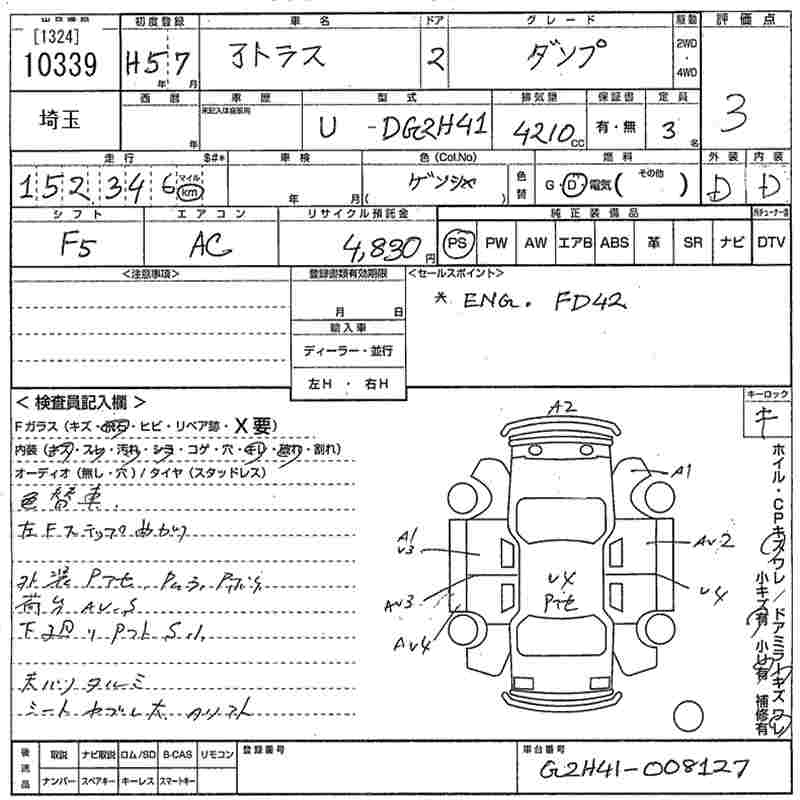 [1324]
10339
初度登録
H5年7月
車名
アトラス
ドア
2
グレード
ダンプ
駆動
2WD
・
4WD
評価点
3
埼玉
西暦
年
車歴
型式
U -DG2H41
排気量
4210cc
保証書
有・無
定員
3名
走行
152,346
マイル
km
$#*
車検
年 月
色(Col.No)
ゲンショク
( )
色替
燃料
G・D・電気( その他 )
外装
D
内装
D
シフト
F5
エアコン
AC
リサイクル預託金
4,830円
純正装備品
PS PW AW エアB ABS 革 SR ナビ DTV
<注意事項>
登録書類有効期限
月 日
輸入車
ディーラー・並行
左H・右H
<セールスポイント>
* ENG. FD42
キーロック
キ
<検査員記入欄>
Fガラス(キズ・飛石・ヒビ・リペア跡・X要)
内装(キズ・スレ・汚れ・シミ・コゲ・穴・キレ・破れ・割れ)
オーディオ(無し・穴)/タイヤ(スタッドレス)
色替車.
左Fステップ曲がり
外装
荷台 AV.S
下廻り
天バリタルミ
シートヤブレ大
A2
A1
A1
V3
AV2
AV3
U4
AV4
ホイル・CPキズワレ/ドアミラーキズワレ
小キズ有 小凹有 補修有
後送品
取説 ナビ取説 ロム/SD B-CAS リモコン
ナンバー スペアキー キーレス スマートキー
登録番号
車台番号
G2H41-008127